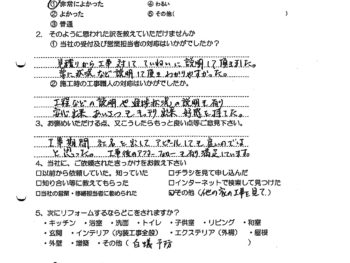 ①非常によかった ④わるい
②よかった ⑤その他(
③普通
2. そのように思われた訳を教えていただけませんか
① 当社の受付及び営業担当者の対応はいかがでしたか?
見積りから工事に対してていねいに説明して頂きました。
常に状況など説明して頂きわかりやすかった。
② 施工時の工事職人の対応はいかがでしたか?
工程などの説明や進捗状況の説明も有り
安心出来、あいさつもキッチリ出来、好感を持てた。
3. お褒めいただける点、又こうしたらもっと良い点等ご意見下さい。
工事期間 社名を出してアピールしても良いのでは
と思った。工事後のアフターフォローも有り満足しています。
4. 当社に、ご依頼されたきっかけをお教え下さい
□以前から依頼していた。知っていた □チラシを見て申し込んだ
□知り合い等に教えてもらった □インターネットで検索して見つけた
□当社の営業・移績担当者に勧められた ☑その他(他の家の工事を見て)
5. 次にリフォームするならどこをされますか?
・キッチン ・浴室 ・洗面 ・トイレ ・子供室 ・リビング ・和室
・玄関 ・インテリア(内装工事全般) ・エクステリア(外構) ・屋根
・外壁 ・増築 ・その他( 白蟻予防